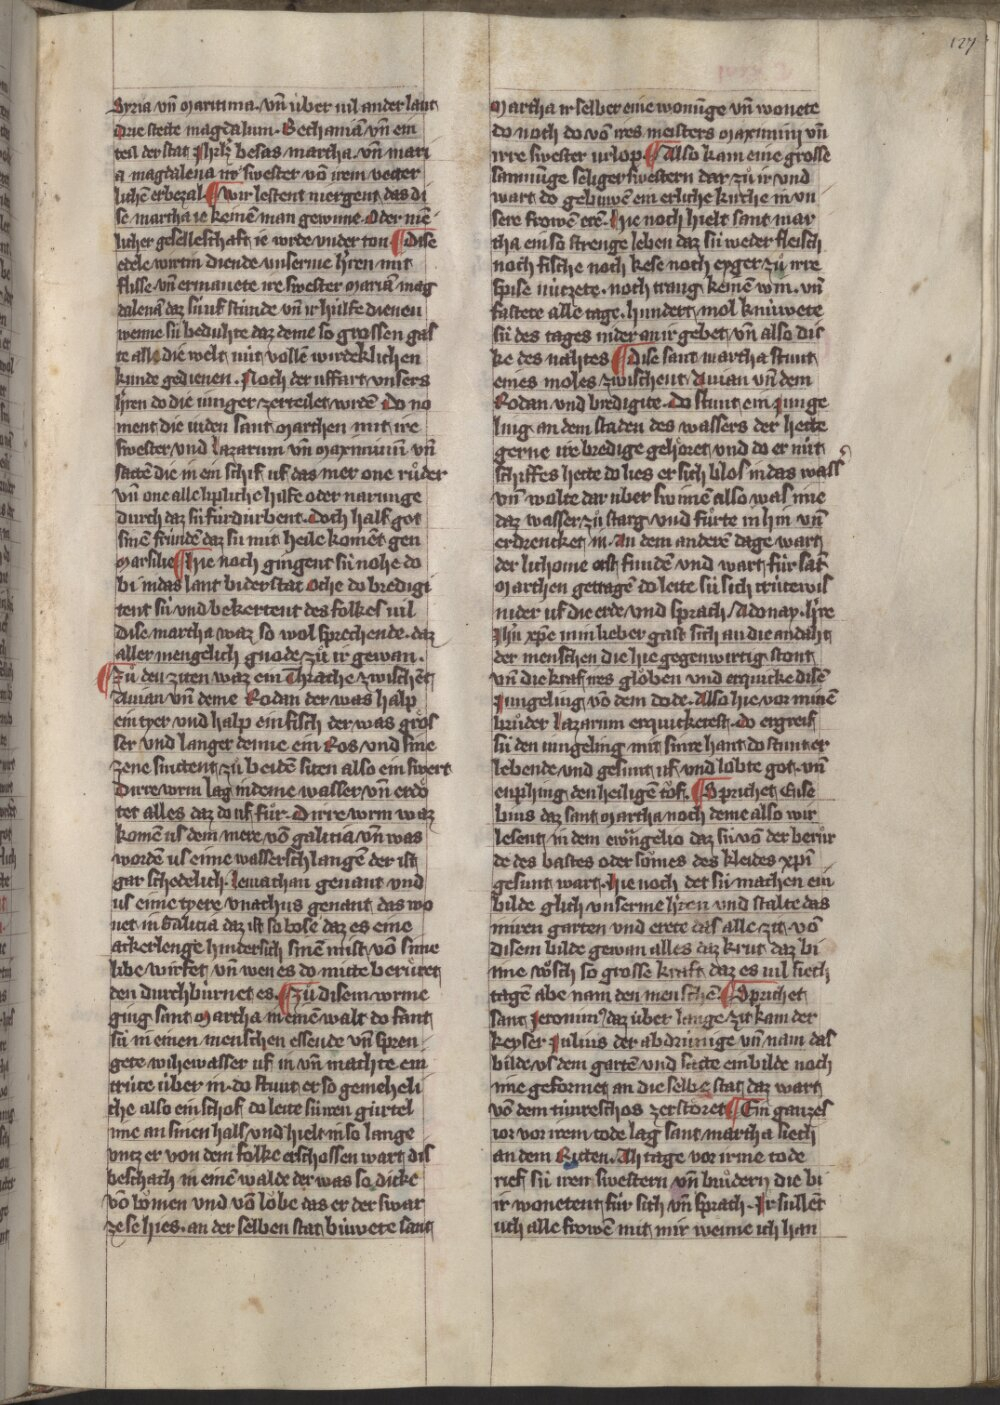 127
Syria vñ maritima. vñ über vil ander lant
drie stette magdalum. Bethaniā vñ ein
teil der stat besas martha. vñ mari
a magdalena ir swester vō irem vetter
lichē erbezal. Wir lesent niergent das di
se martha ie keinē man gewunne. Oder mē
licher geselleschaft ie wrde vnder ton Dise
edele wirtin diende vnserme h̄ren mit
flisse vñ ermanete ire swester mariā mag
dalenā daz sú uf stúnde vñ ir hulfe dienen
wenne sú beduhte daz deme so grossen gas
te alle die welt nüt vollē wirdeklichen
kunde gedienen. Noch der uffart vnsers
h̄ren do die iunger zerteilet wrdē Do no
ment die iuden sant marthen mit ire
swester vnd Lazarum vñ maximinū vñ
sattē die in ein schif uf das mer one růder
vñ one alle lipliche hilfe oder narunge
durch daz sú fúrdurbent. Doch half got
sinē frúndē daz sú mit heile komēt gen
marsilie Hie noch gingent sú nohe do
bi in das lant bi der stat Oche do bredigi
tent sú vnd bekertent des folkes vil
Dise martha waz so wol sprechende. daz
aller mengelich gnode zů ir gewan.
Zů den ziten waz ein Thrache zwischēt
Auian vñ deme Rodan der was halp
ein tyer vnd halp ein fisch der was grös
ser vnd langer denne ein Ros vnd sine
zene snittent zů beidē siten also ein swert
Dirre wrm lag in deme wasser vñ erdō
tet alles daz do uf fůr. Dirre wrm waz
komē us dem mere vō galicia vñ was
wordē us eime wasserschlangē der ist
gar schedelich. Leuiathan genant vnd
us eime tyere vnachus genant das wo
net in Galicia daz ist so bose daz es eine
ackerlenge hindersich sinē mist vō sime
libe wirfet vñ wen es do mitte berüret
den durchbürnet es. Zů disem wrme
ging sant martha in einē walt do fant
sú in einen menschen essende vñ spren
gete wihewasser uf in vñ machte ein
crütze über in. do stunt er so gemeheli
che also ein schof do leite sú iren gürtel
ime an sinen hals vnd hielt in so lange
vntz er von dem folke erschossen wart dis
beschach in einē walde der was so dicke
vō bömen vnd vō löbe das er der swar
ze se hies. an der selben stat buwete sant
Martha ir selber eine wonūge vñ wonete
do noch do vō ires meisters maximini vñ
irre swester urlop Also kam eine grosse
samnūge seliger swestern dar zů ir vnd
wart do gebuwē ein erliche kirche in vn
sere frowē ere. Hie noch hielt sant mar
tha ein so strenge leben daz sú weder fleisch
noch fische noch kese noch eyger zů irre
spise nützete. noch trang keinē win. vñ
fastete alle tage. hundert mol knúwete
sú des tages nider an ir gebet vñ also dic
ke des nachtes Dise sant martha stunt
eines moles zwischent Auian vñ dem
Rodan vnd bredigite. Do stunt ein junge
ling an dem staden des wassers der hette
gerne ire bredige gehöret vnd do er nüt
schiffes hette do lies er sich blos in das wass
vñ wolte dar über swimē also was ime
daz wasser zů starg vnd fůrte in hin vñ
erdrencket in. An dem anderē dage wart
der lichome funden vnd wart für sāt
marthen gettragē do leite sú sich crützewis
nider uf die erde vnd sprach Adonay. h̄re
Jh̄u xp̄e min lieber gast sich an die andaht
der menschen die hie gegenwirtig stont
vñ die kraf ires glöben vnd erquicke disē
Jungeling vō dem dode. Also hie vor minē
brůder Lazarum erquicketest. do ergreif
sú den iungeling mit sinre hant do stunt er
lebende vnd gesunt uf vnd lobte got. vñ
enphing den heiligē töf. Sprichet Euse
bius daz sant martha noch deme also wir
lesent in dem ewāgelio daz sú vō der berůr
de des bastes oder sömes des kleides xp̄i
gesunt wart. Hie noch det sú machen ein
bilde glich vnserme h̄ren vnd stalte das
in iren garten vnd erete das alle zit. vō
disem bilde gewan alles daz krut daz bi
ime wösch so grosse kraft daz es vil siech
tagē abe nam den menschē Sprichet
sant Jeronim⁹ daz über lange zit kam der
keyser Julius der abdrünige vñ nam das
bilde vs dem gartē vnd satte ein bilde noch
ime geformet an die selbe stat daz wart
vō dem tunreschos zerstöret Ein ganzes
ior vor irem tode lag sant martha siech
an dem Ritten. Ah tage vor irme tode
rief sú iren swestern vñ brüdern die bi
ir wonetent für sich vñ sprach. Ir sullēt
úch alle frowē mit mir wenne ich han